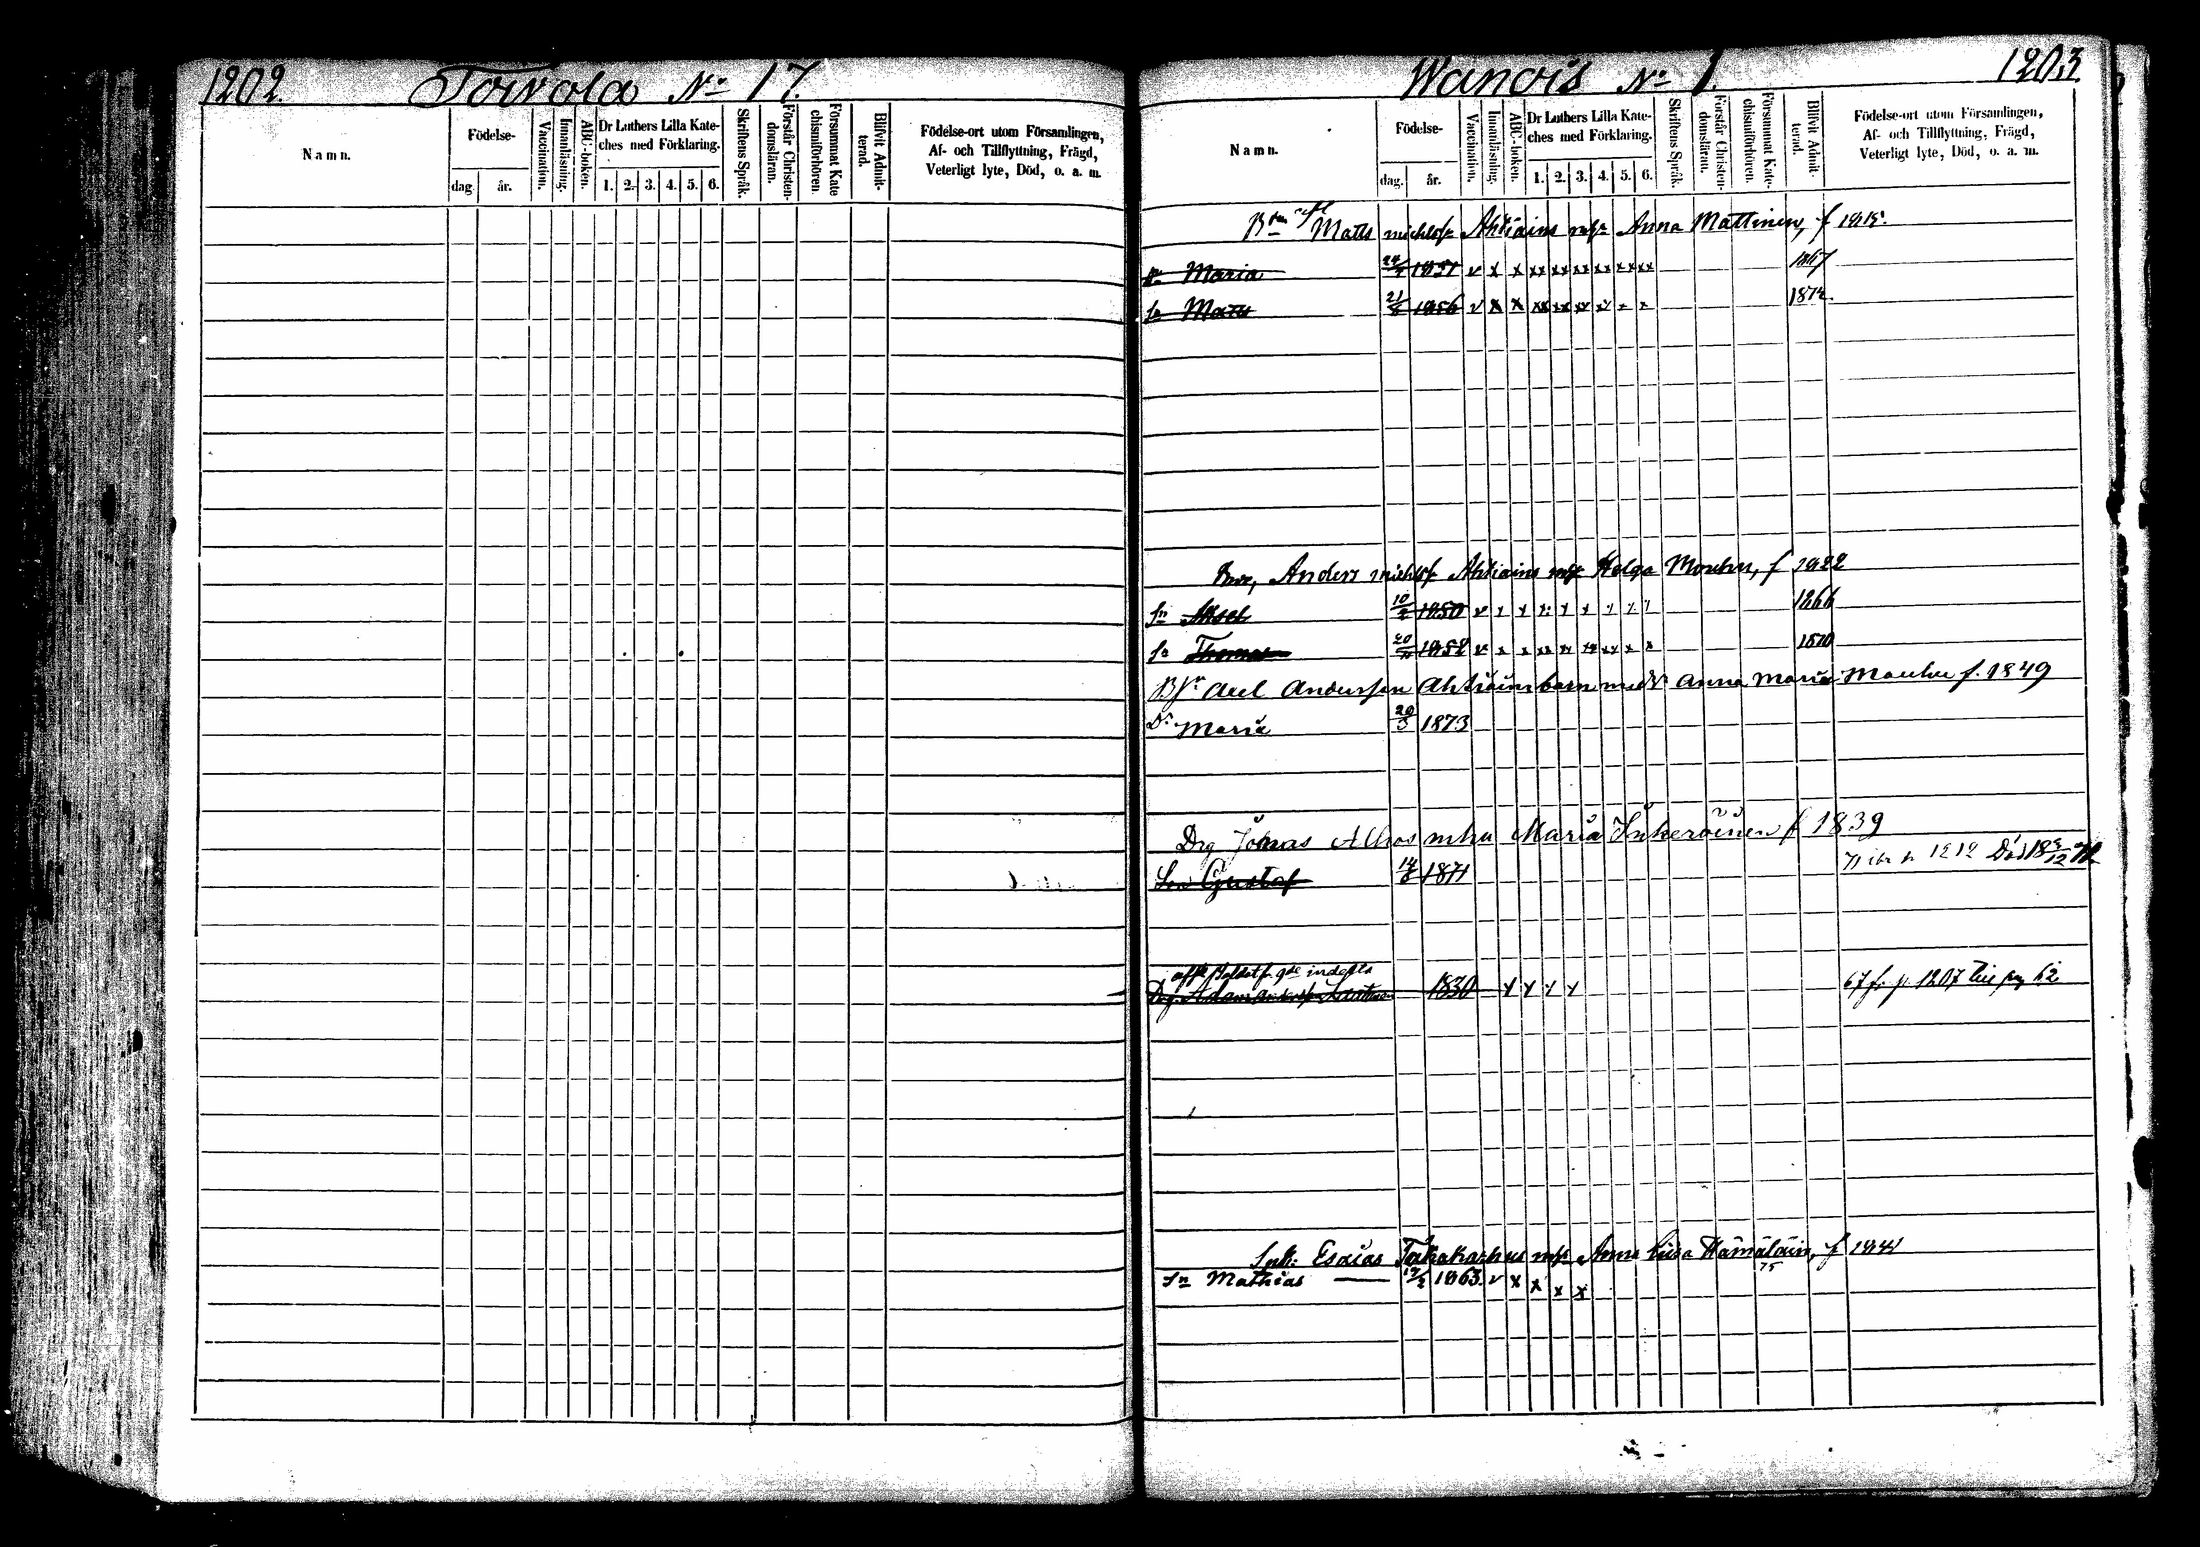 1202. Toivola No 17.
Namn.
Födelse-
dag. år.
Vaccination.
Innanläsning.
ABC-boken.
Dr Luthers Lilla Kate-
ches med Förklaring.
1. 2. 3. 4. 5. 6.
Skriftens Språk.
Förstår Christen-
domsläran.
Försummat Kate
chismiförhören.
Blifvit Admit-
terad.
Födelse-ort utom Församlingen,
Af- och Tillflyttning, Frägd,
Veterligt lyte, Död, o. a. m.
Wanois No 1. 1203.
Namn.
Födelse-
dag. år.
Vaccination.
Innanläsning.
ABC-boken.
Dr Luthers Lilla Kate-
ches med Förklaring.
1. 2. 3. 4. 5. 6.
Skriftens Språk.
Förstår Christen-
domsläran.
Försummat Kate-
chismiförhören.
Blifvit Admit-
terad.
Födelse-ort utom Församlingen,
Af- och Tillflyttning, Frägd,
Veterligt lyte, Död, o. a. m.
Matts michlsr Ahtiains Anna Mattinen, f 1815.
Maria 1851 v x x xx xx xx xx xx xx 1867
Sn Matts 21 1856 v x x xx xx xx x x x 1874.
Anders michlsr Ahtiains Helga Mouhu, f 1822
Sn Aksel 10 1850 v x x x x x x x x 1866
Sn Thomas 20 1852 v x x xx xx xx xx x x 1870
Axel Andersson Ahtiains barn med Anna Maria Mouhu f. 1849
Dr Maria 20/3 1873
Drg Jonas Alhos Maria Inkeröinen f 1839
Son Gustaf 14/8 1871 1212 Död 18
Drg. Adam Andersson 1830 x x x x 67 fr. p. 1207 62
Esaias Takakarhus Anna Lisa Hämäläin, f 1841
75
Sn Mathias 1863. v x x x x